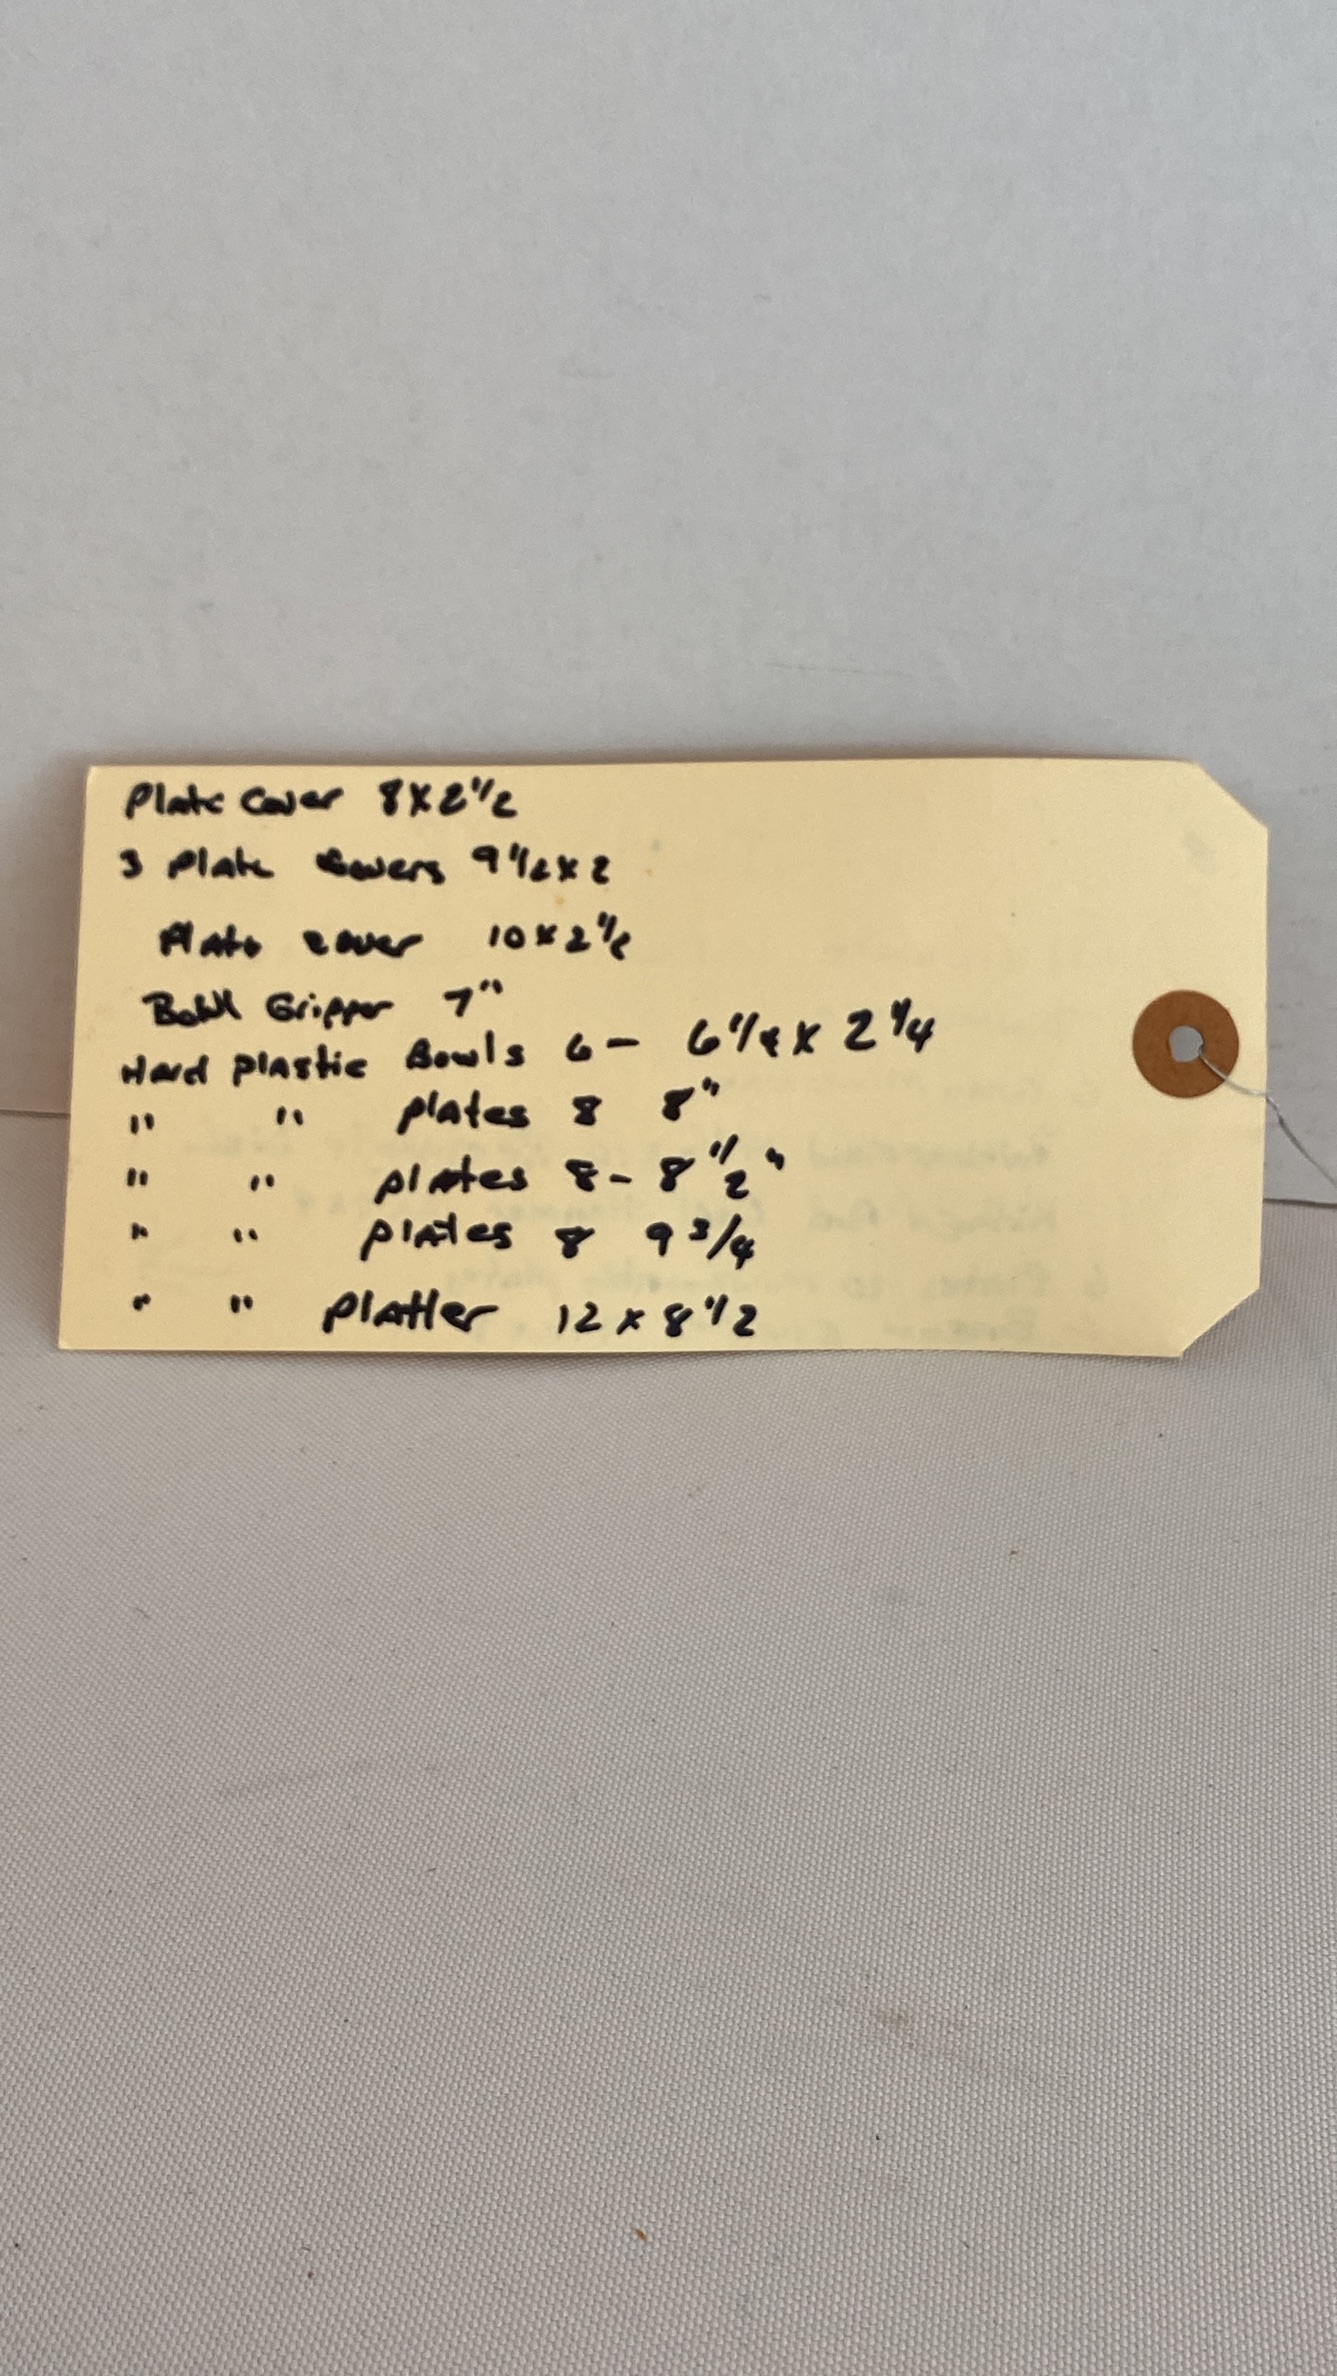 Plate Cover 8X2 1/2
3 Plate Covers 9 1/2 X 2
Plate cover 10 X 2 1/2
Bowl Gripper 7"
Hard plastic Bowls 6 - 6 1/4 X 2 1/4
" " plates 8 8"
" " plates 8 - 8 1/2"
" " plates 8 9 3/4
" " platter 12 x 8 1/2